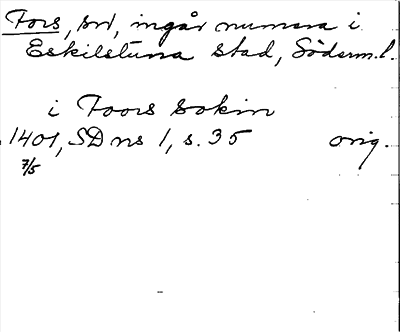 Fors, sn, ingår numera i
Eskilstuna stad, Söderm.l.
i Foors sokin
1401, SD ns 1, s. 35 orig.
7/5